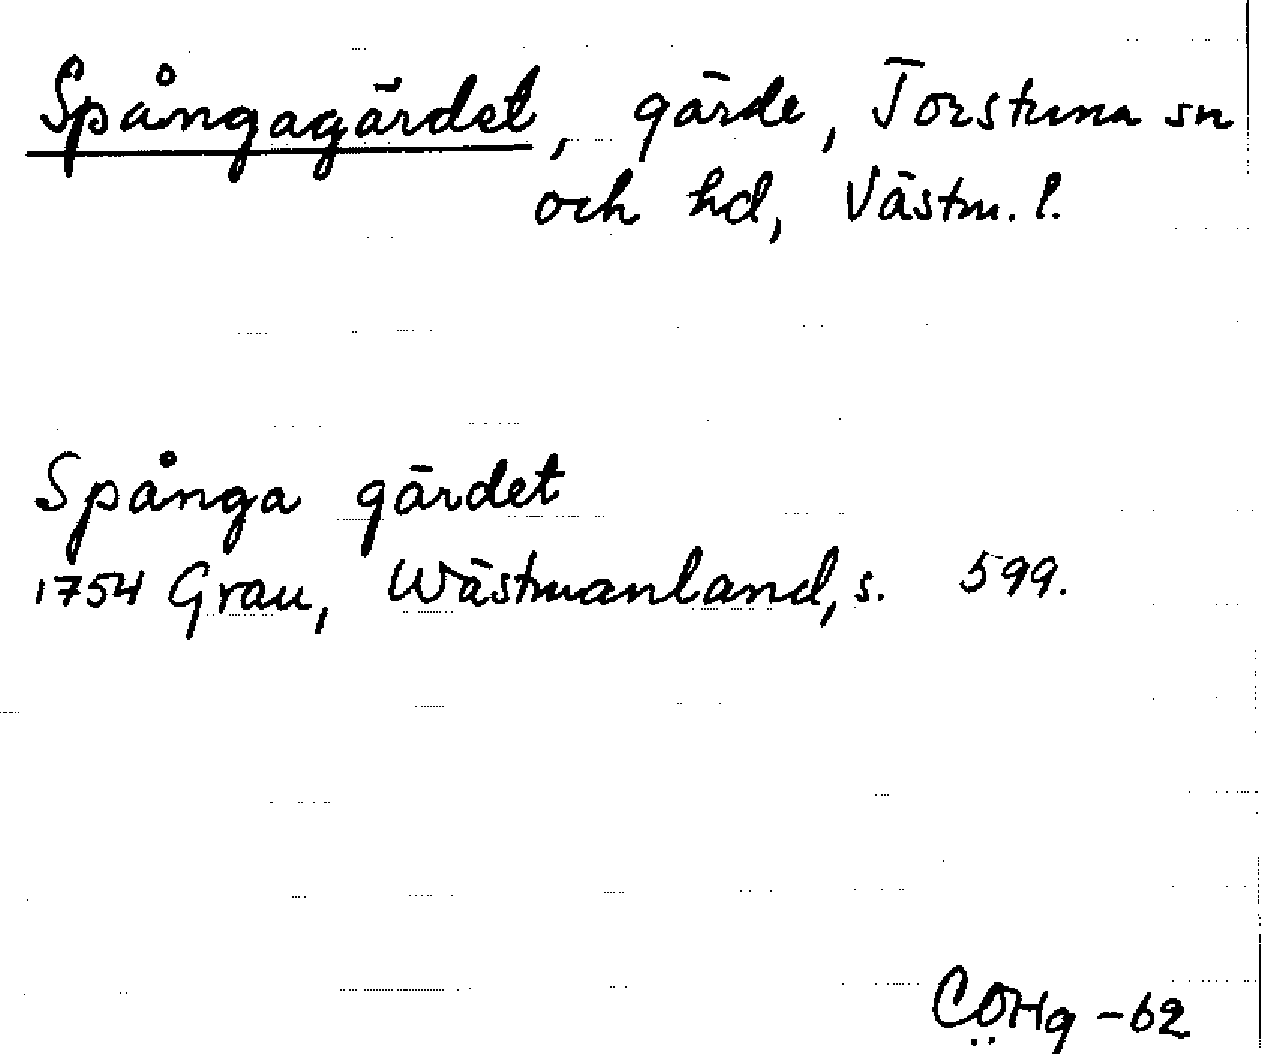 Spångagärdet, gärde, Torstuna sn
och hd, Västm. l.
Spånga gärdet
1754 Grau, Wästmanland, s. 599.
CÖHg -62